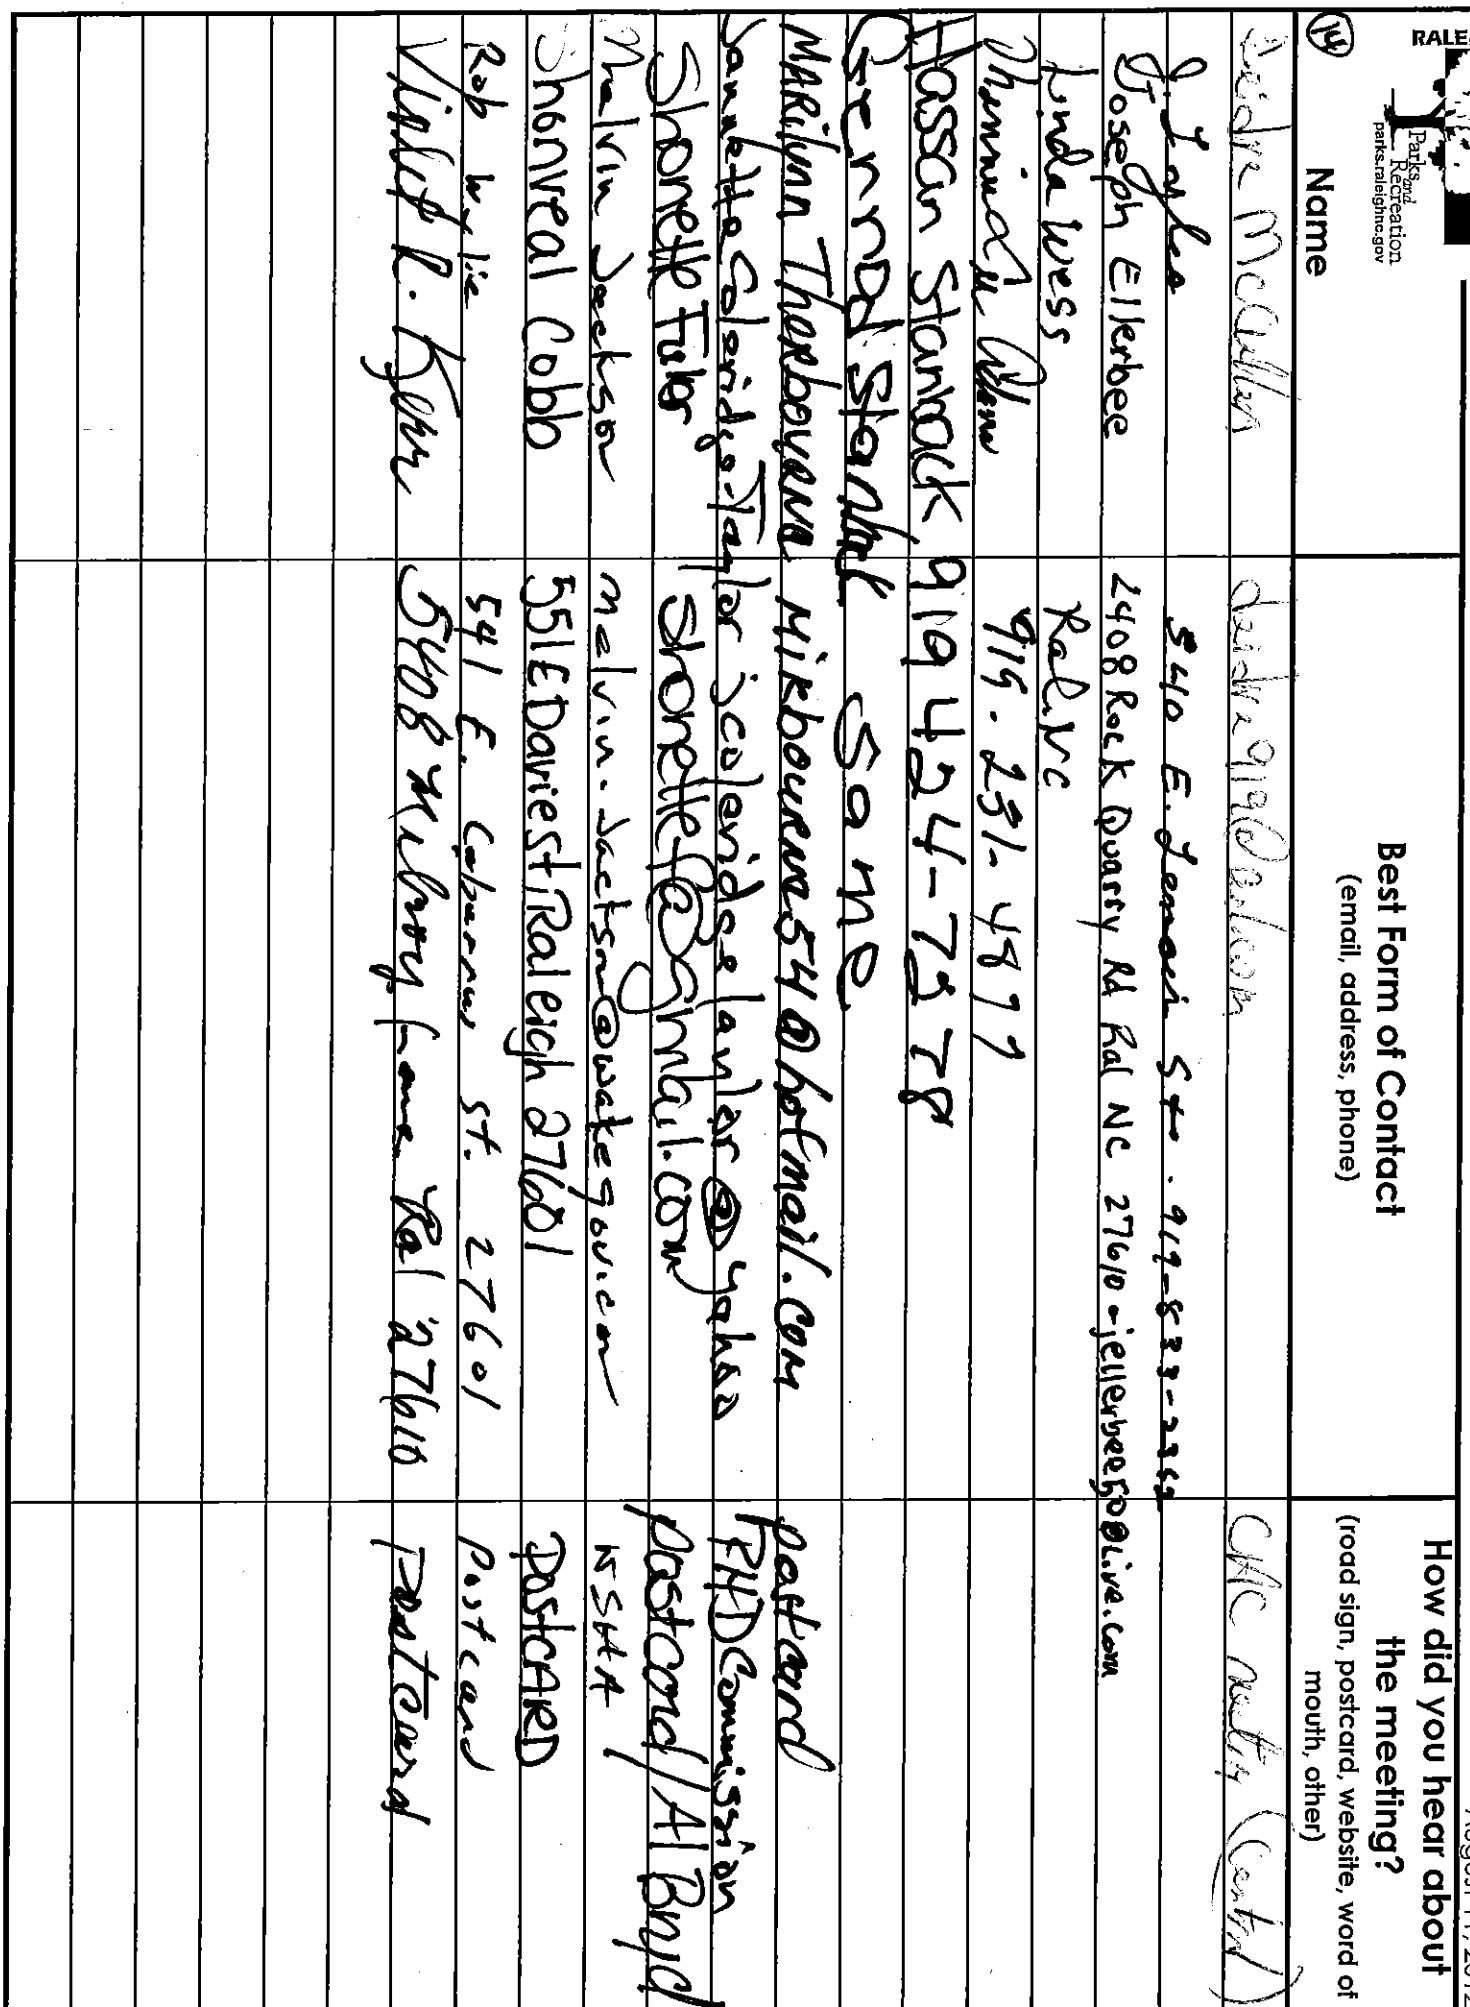 RALE
Parks and Recreation
parks.raleighnc.gov
14
Name
Best Form of Contact
(email, address, phone)
How did you hear about the meeting?
(road sign, postcard, website, word of mouth, other)
Deidre McCullen deidre919@aol.com CAC meeting (Central)
540 E. Lenoir St. 919-833-2362
Joseph Ellerbee 2408 Rock Quarry Rd Ral NC 27610 - jellerbee50@Live.com
Lunda Wess Ral. NC
919.231.4877
Hassan Stanback 919 424-7378
same
MARilynn Thorbourne Mikbourne54@hotmail.com postcard
Jannetta Coleridge-Taylor jcoleridgetaylor@yahoo RHD Commission
Shonette shonette@gmail.com postcard/Al
Melvin Jackson melvin.jackson@wakegov.com NSHA
Shonreal Cobb 551 E Davie st/Raleigh 27601 PostCARD
Rob Wylie 541 E. Cabarrus St. 27601 Postcard
R. 5408 Lane Ral 27610 Postcard